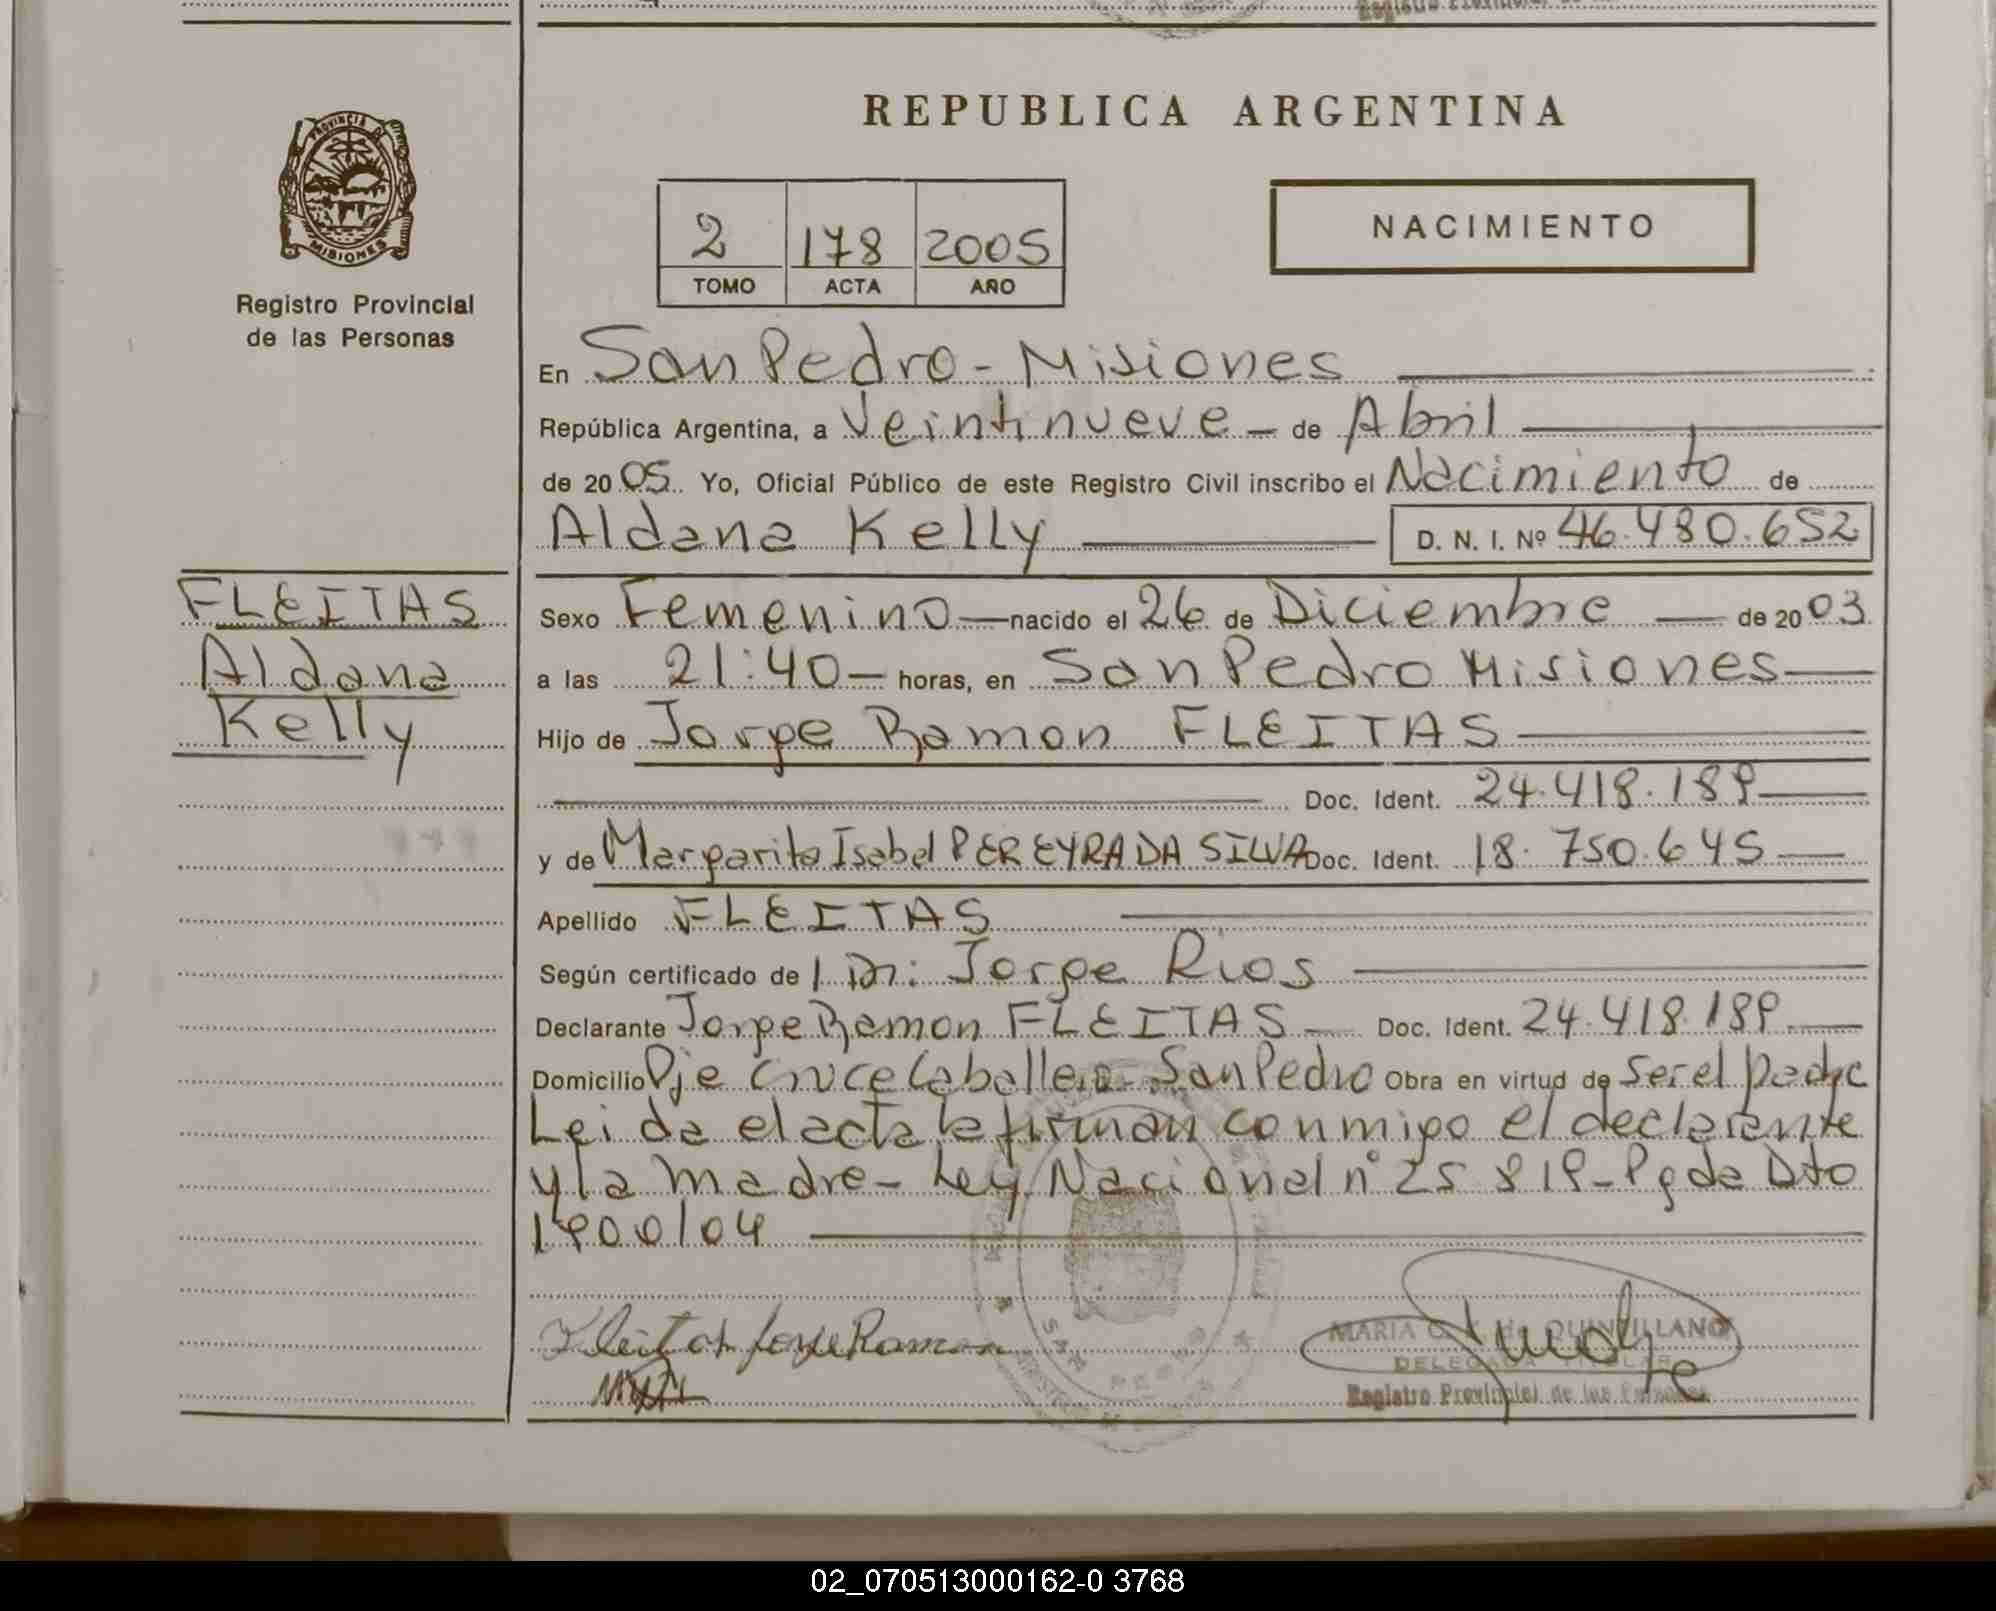 REPUBLICA ARGENTINA
PROVINCIA DE
MISIONES
Registro Provincial
de las Personas
2 178 2005
TOMO ACTA AÑO
NACIMIENTO
En San Pedro - Misiones
República Argentina, a Veintinueve - de Abril
de 2005. Yo, Oficial Público de este Registro Civil inscribo el Nacimiento de
Aldana Kelly D. N. I. Nº 46.480.652
FLEITAS
Aldana
Kelly
Sexo Femenino nacido el 26 de Diciembre de 2003
a las 21:40 - horas, en San Pedro Misiones
Hijo de Jorge Ramon FLEITAS
Doc. Ident. 24.418.189
y de Margarita Isabel PEREYRA DA SILVA Doc. Ident. 18.750.645
Apellido FLEITAS
Según certificado de Dr: Jorge Rios
Declarante Jorge Ramon FLEITAS Doc. Ident. 24.418.189
Domicilio Pje Cruce Caballero - San Pedro Obra en virtud de ser el padre
Leida el acta la firman conmigo el declarante
y la madre - Ley Nacional nº 25 819 - Pgda Dto
1900/04
Fleitas Jorge Ramon
MARIA QUINTILLANO
DELEGADA TITULAR
Registro Provincial de las Personas
SAN PEDRO
02_070513000162-0 3768